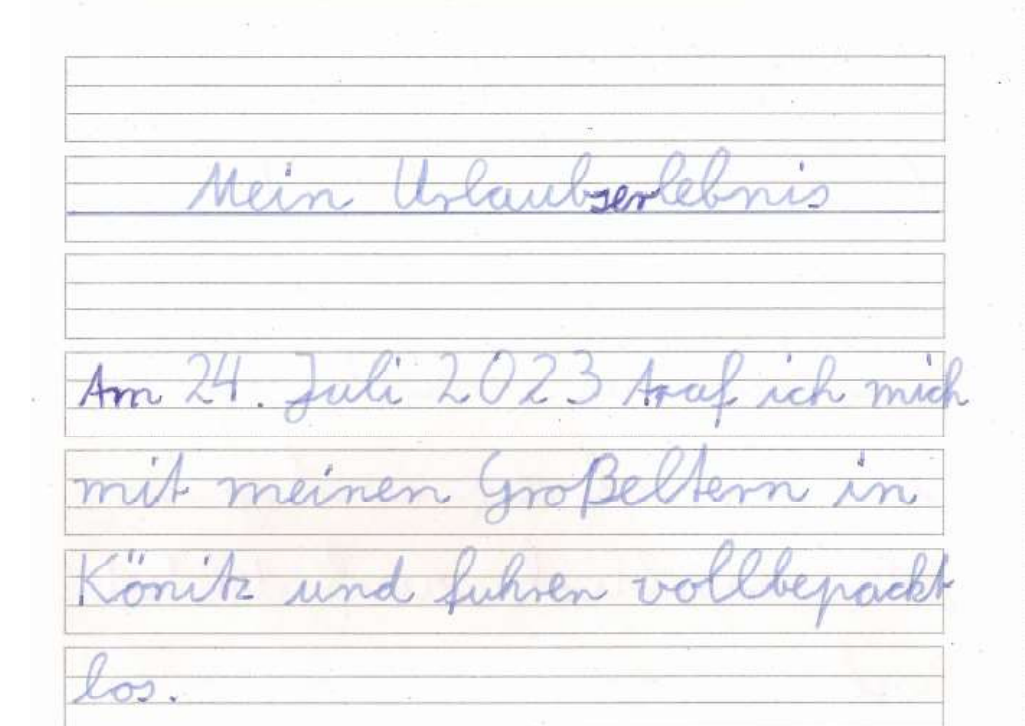 Mein Urlaubserlebnis
Am 24. Juli 2023 traf ich mich
mit meinen Großeltern in
Könitz und fuhren vollbepackt
los.